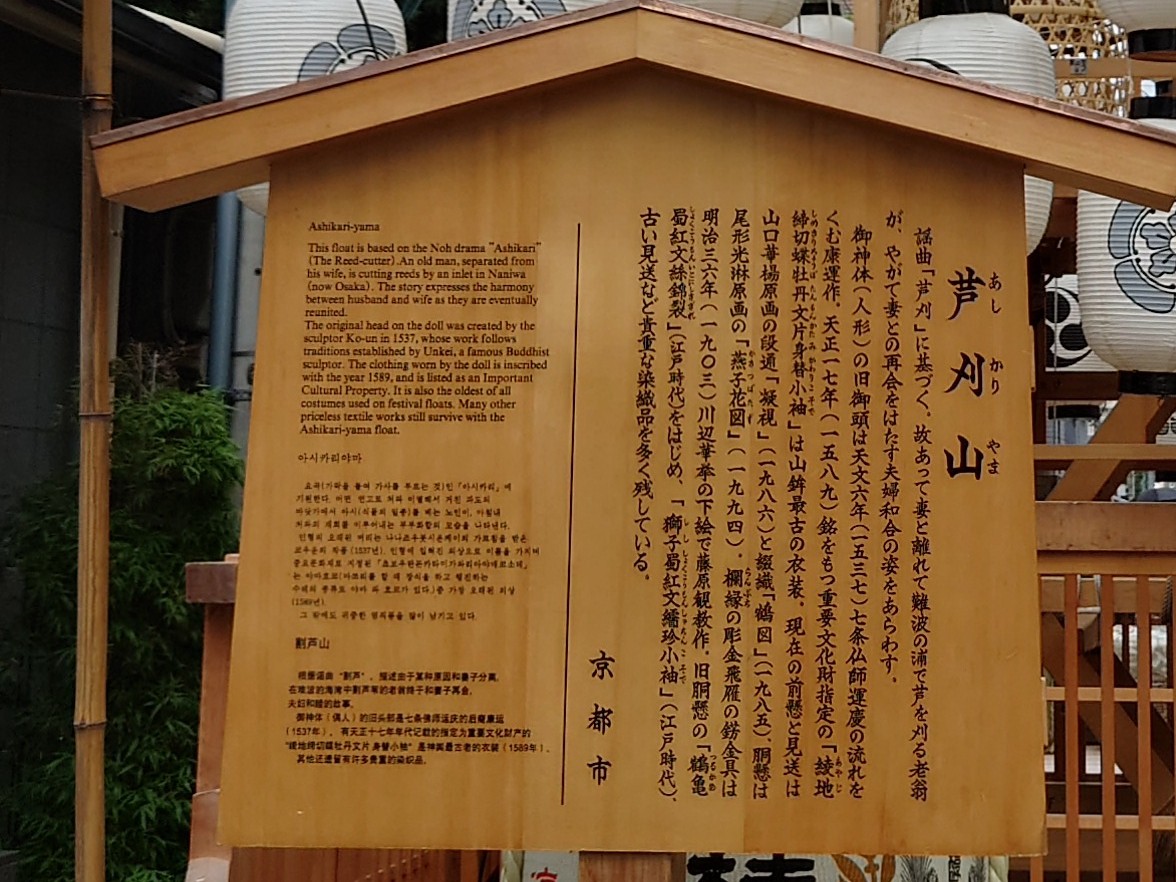 芦刈山
あし かり やま
謡曲「芦刈」に基づく。故あって妻と離れて難波の浦で芦を刈る老翁
が、やがて妻との再会をはたす夫婦和合の姿をあらわす。
御神体(人形)の旧御頭は天文六年(一五三七)七条仏師運慶の流れを
くむ康運作。天正一七年(一五八九)銘をもつ重要文化財指定の「綾地
締切蝶牡丹文片身替小袖」は山鉾最古の衣装。現在の前懸と見送は
山口華楊原画の段通「凝視」(一九八六)と綴織「鶴図」(一九八五)、胴懸は
尾形光淋原画の「燕子花図」(一九九四)。欄縁の彫金飛雁の錺金具は
明治三六年(一九〇三)川辺華挙の下絵で藤原観教作。旧胴懸の「鶴亀
蜀紅文絲錦裂」(江戸時代)をはじめ、「獅子蜀紅文繻珍小袖」(江戸時代)、
古い見送など貴重な染織品を多く残している。
京都市
Ashikari-yama
This float is based on the Noh drama "Ashikari"
(The Reed-cutter). An old man, separated from
his wife, is cutting reeds by an inlet in Naniwa
(now Osaka). The story expresses the harmony
between husband and wife as they are eventually
reunited.
The original head on the doll was created by the
sculptor Ko-un in 1537, whose work follows
traditions established by Unkei, a famous Buddhist
sculptor. The clothing worn by the doll is inscribed
with the year 1589, and is listed as an Important
Cultural Property. It is also the oldest of all
costumes used on festival floats. Many other
priceless textile works still survive with the
Ashikari-yama float.
아시카리야마
요곡(가락을 붙여 가사를 부르는 것)인 「아시카리」에
기원한다. 어떤 연고로 처와 이별해서 거친 파도의
바닷가에서 아시(식물의 일종)를 베는 노인이, 이윽내
처와의 재회를 이루어내는 부부화합의 모습을 나타낸다.
(1589년).
그 밖에도 귀중한 염직품을 많이 남기고 있다.
割芦山
根据谣曲“割芦”,描述由于某种原因和妻子分离,
在难波的海湾中割芦苇的老翁终于和妻子再会,
夫妇和睦的故事。
御神体(偶人)的旧头部是七条佛师运庆的后裔康运
(1537年)。有天正十七年年代记载的指定为重要文化财产的
“绫地缔切蝶牡丹文片身替小袖”是神舆最古老的衣装(1589年)。
其他还遗留有许多贵重的染织品。